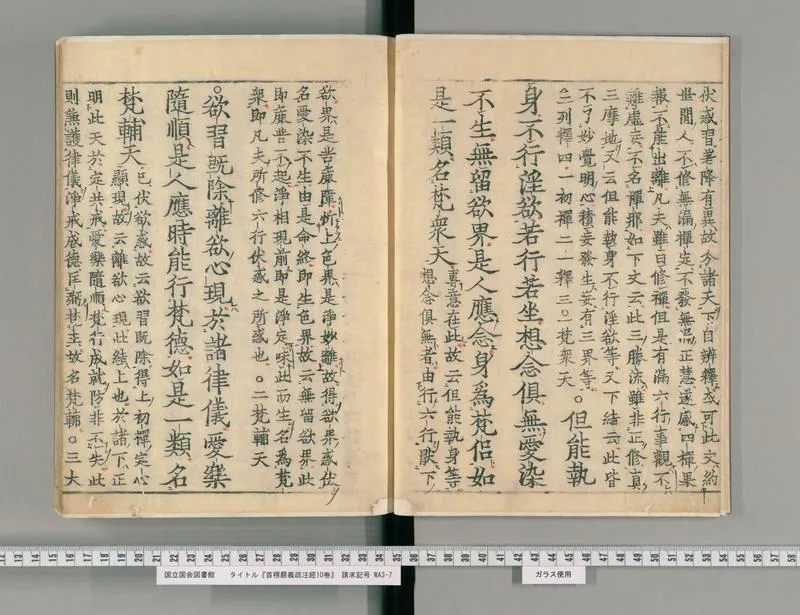 伏惑習署降有異故今諸天下自辨釋或可此文約
世間人不修無漏禪定不發無漏正慧遂感四禪果
報不能出離凡夫雖曰修禪但是有漏六行事觀不
離虛妄不名禪那如下文云此三勝流雖非正修真
三摩地又云但能執身不行淫欲等又下結云此皆
不了妙覺明心積妄發生妄有三界等
三列釋四一初禪二一釋三○一梵衆天
○但能執
身不行淫欲若行若坐想念俱無愛染
不生無留欲界是人應念身爲梵侶如
是一類名梵衆天
裏意在此故云但能執身等
想念俱無者由行六行厭下
欲界是苦麤障忻上色界是淨妙離故得欲界惑伏
名愛染不生由是命終即生色界故云無留欲界此
即麤苦不起淨相現前即是淨定味此而生名爲梵
衆即凡夫所修六行伏惑之所感也○二梵輔天
○欲習既除離欲心現於諸律儀愛樂
隨順是人應時能行梵德如是一類名
梵輔天
已伏欲惑故云欲習既除得上初禪定心
顯現故云離欲心現此結上也於諸下正
明此天於定共戒愛樂隨順梵行成就防非不失此
則無護律儀淨戒感德匡弼梵主故名梵輔○三大
13 14 15 16 17 18 19 20 21 22 23 24 25 26 27 28 29 30 31 32 33 34 35 36 37 38 39 40 41 42 43 44 45 46 47 48 49 50 51 52 53 54 55 56 57 58
国立国会図書館 タイトル『首楞嚴義疏注經10巻』 請求記号 WA3-7
ガラス使用